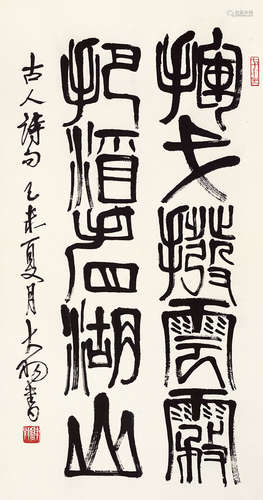 揮戈撥雲霧
把酒看湖山
古人詩句 己未夏月 大羽書